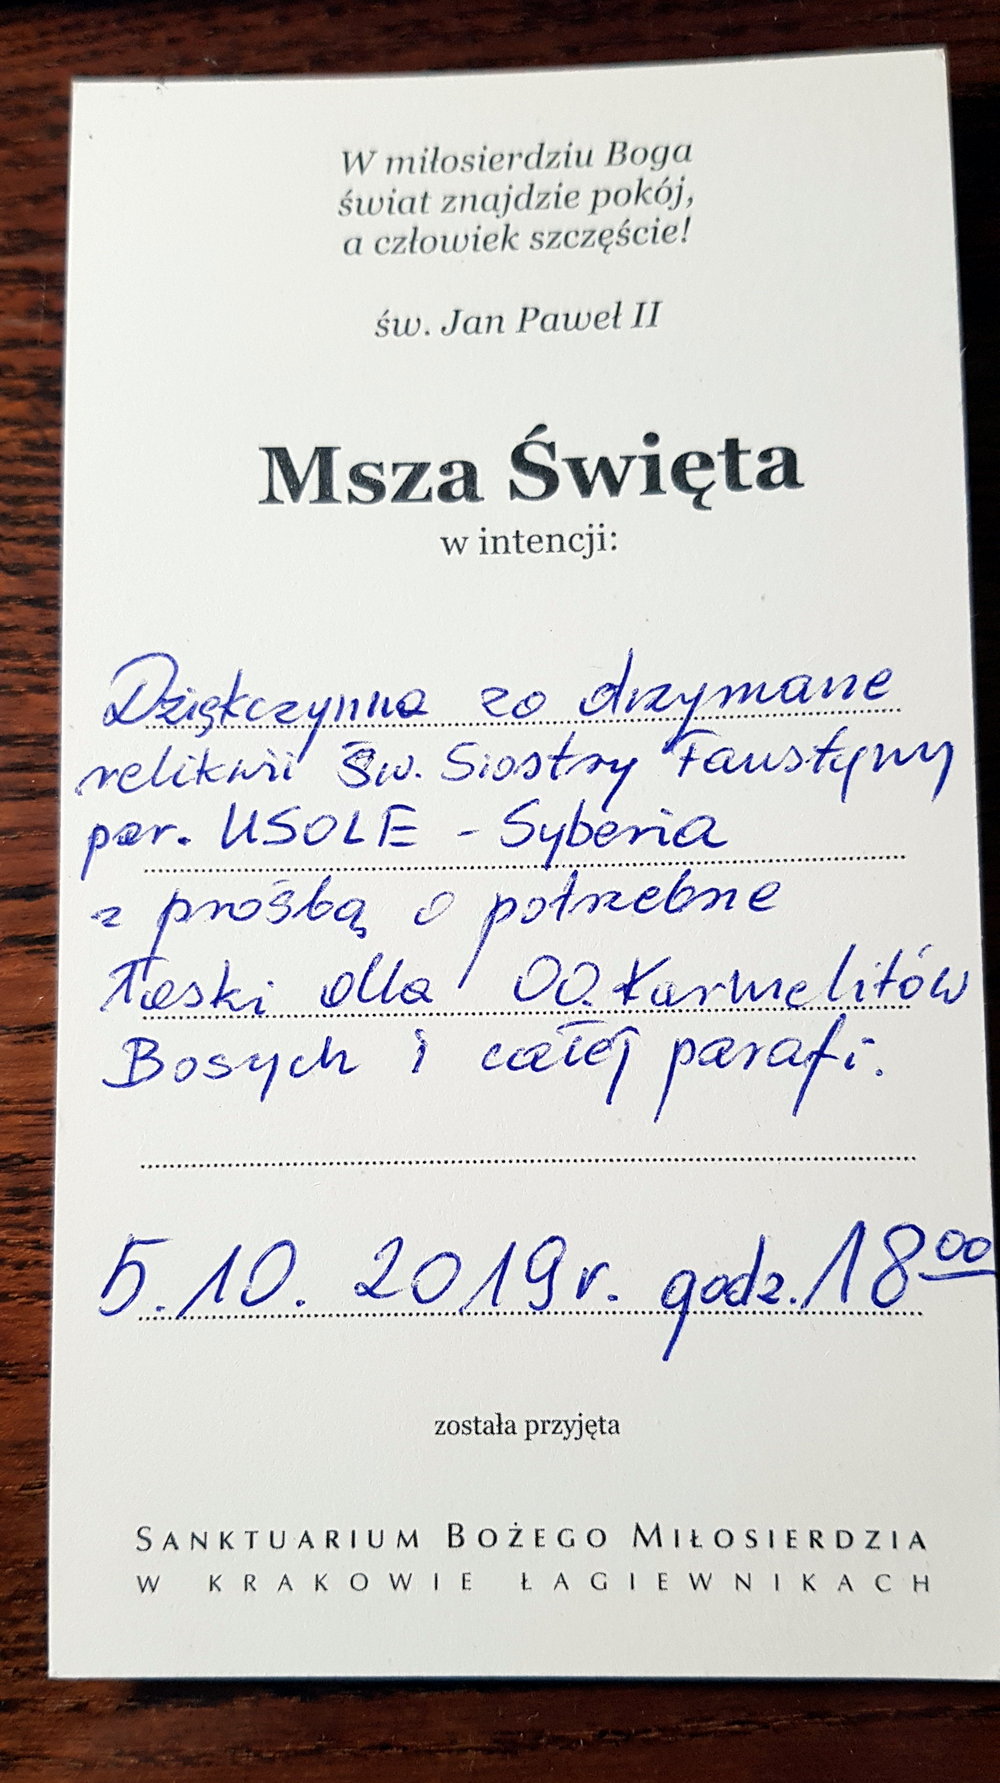 W miłosierdziu Boga
świat znajdzie pokój,
a człowiek szczęście!
św. Jan Paweł II
Msza Święta
w intencji:
Dziękczynna za otrzymane
relikwii Św. Siostry Faustyny
par. USOLE - Syberia
z prośbą o potrzebne
łaski dla OO. Karmelitów
Bosych i całej parafi.
5.10.2019r. godz. 18 00
została przyjęta
SANKTUARIUM BOŻEGO MIŁOSIERDZIA
W KRAKOWIE ŁAGIEWNIKACH